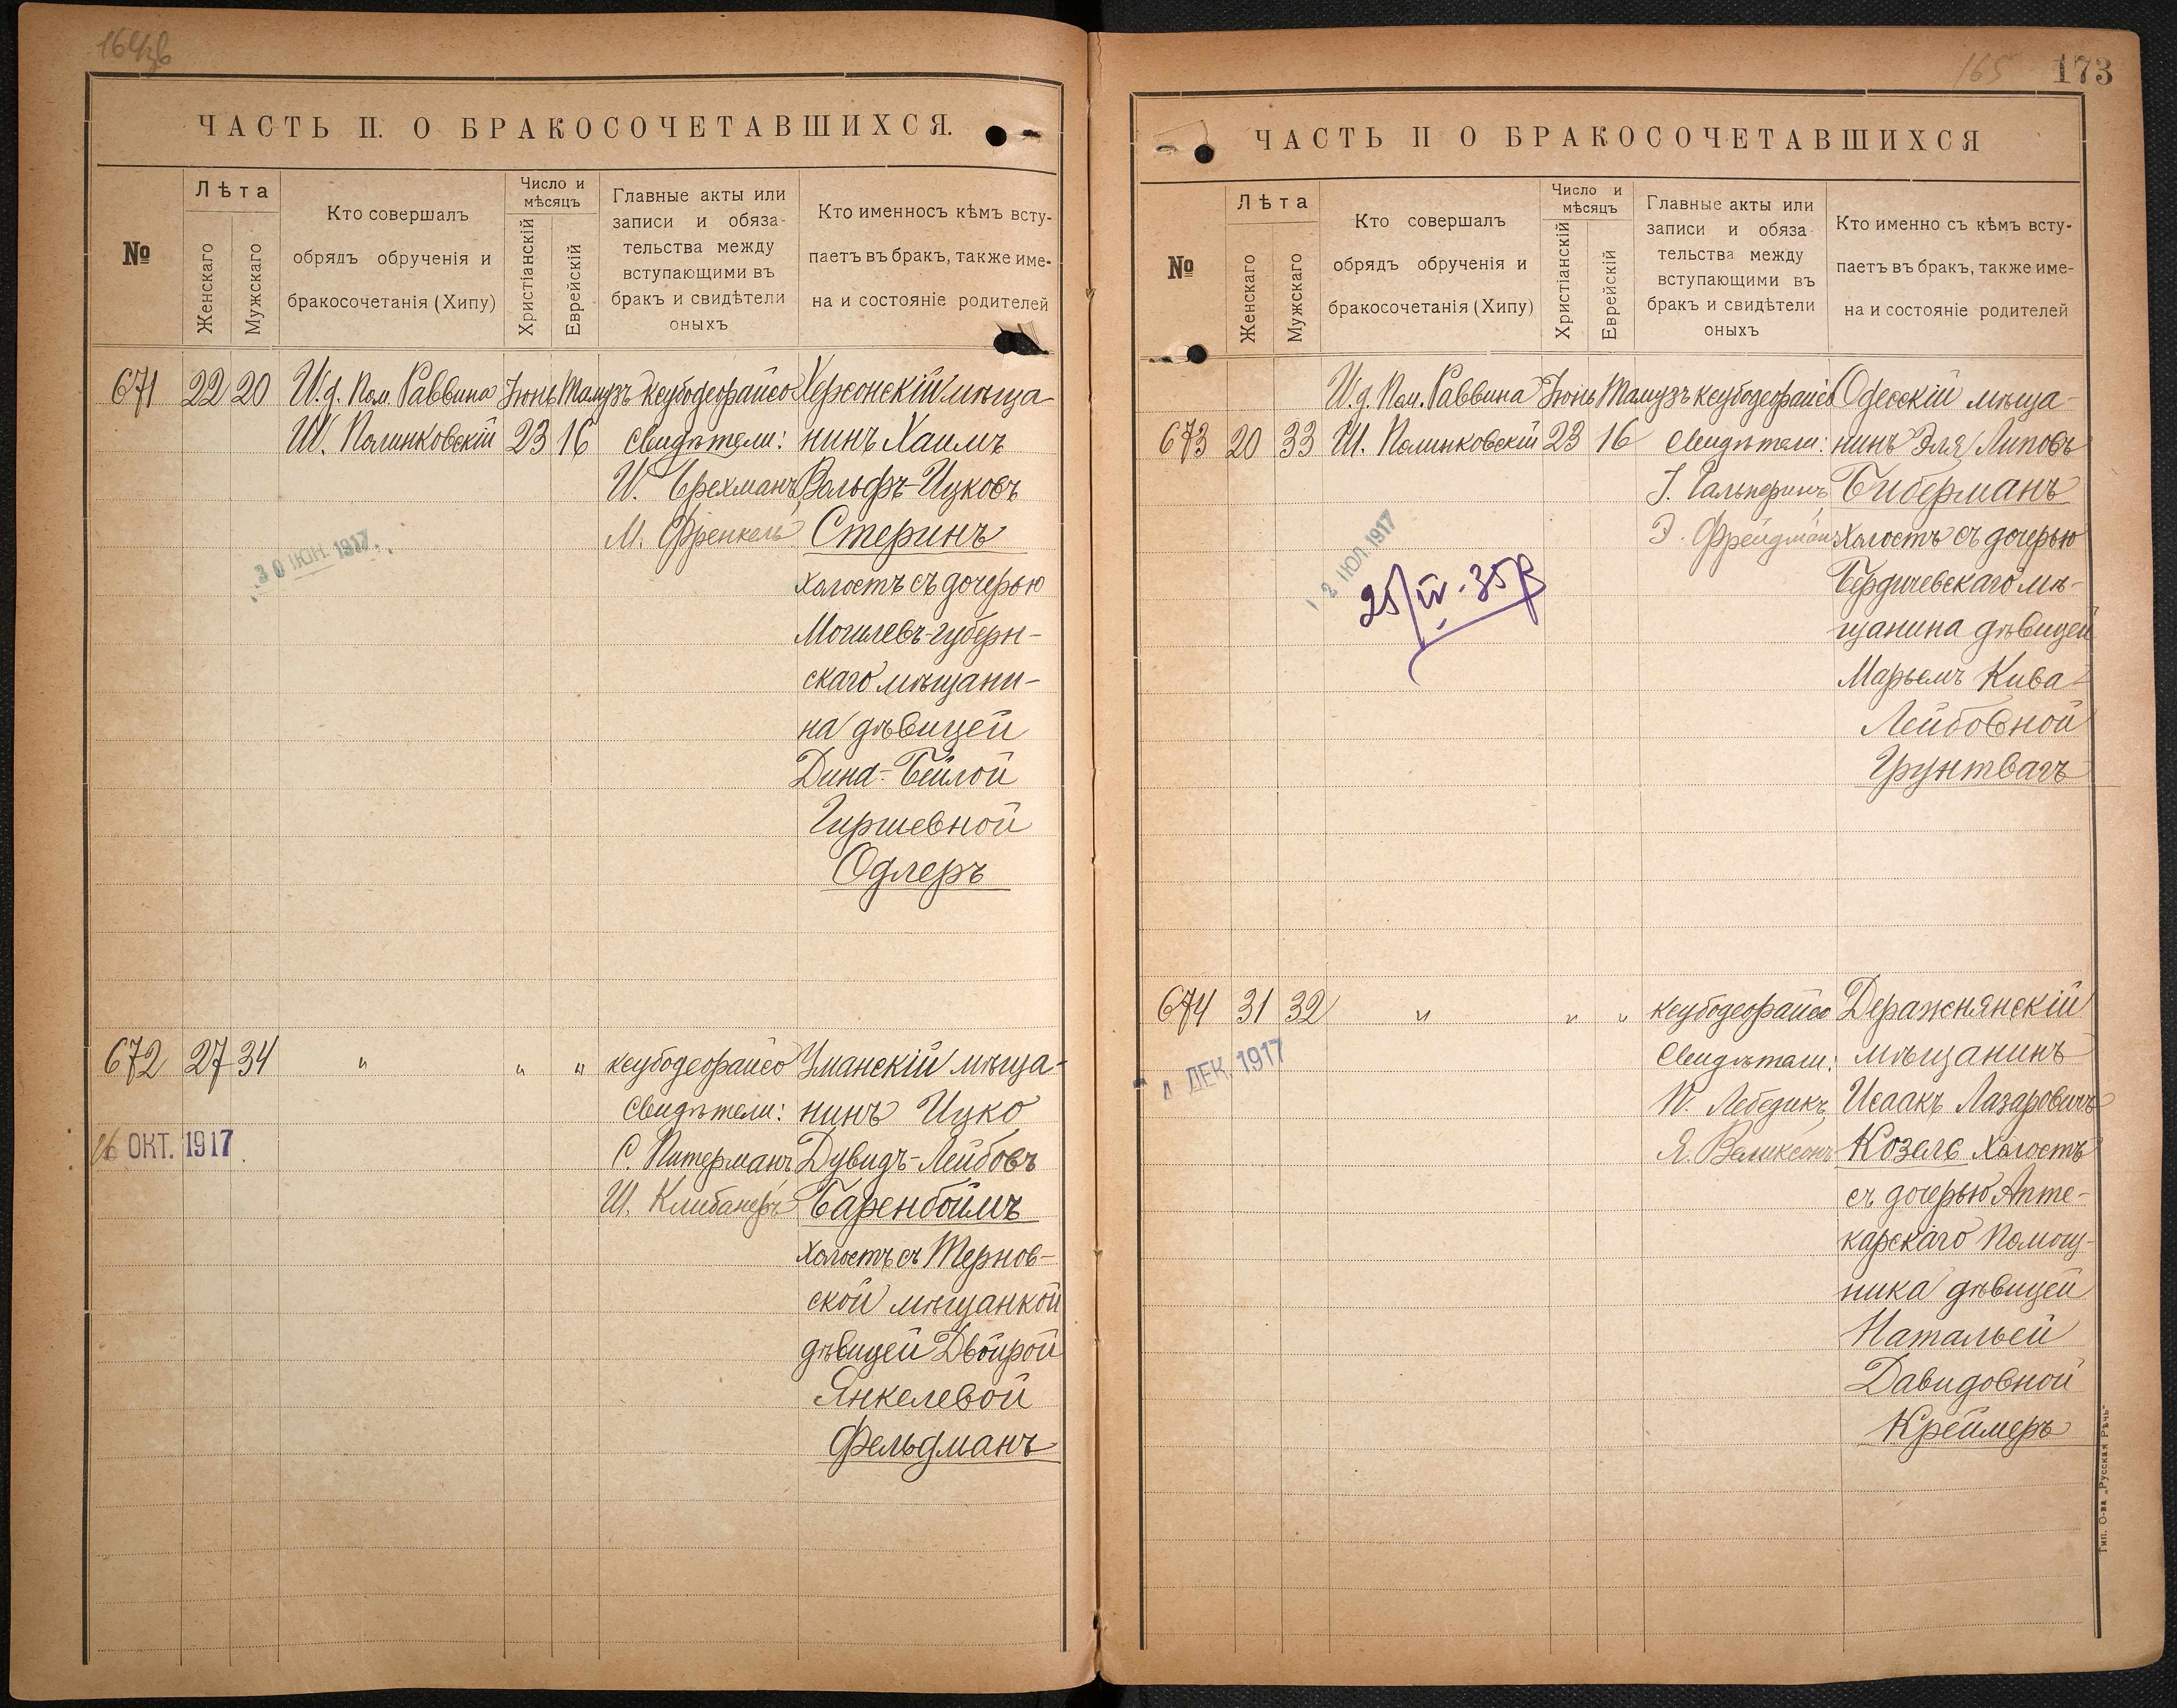 ЧАСТЬ II. О БРАКОСОЧЕТАВШИХСЯ.
№
Лѣта
Женскаго
Мужскаго
Кто совершалъ
обрядъ обрученія и
бракосочетанія (Хипу)
Число и
мѣсяцъ
Христіанскій
Еврейскій
Главные акты или
записи и обяза-
тельства между
вступающими въ
бракъ и свидѣтели
оныхъ
Кто именносъ кѣмъ всту-
паетъ въ бракъ, также име-
на и состояніе родителей
671 22 20 И.д. Пом. Раввина Іюнь Тамузъ ксубодеорайсо Херсонскій мѣща-
Ш. Полинковскій 23 16 Свидѣтели: нинъ Хаимъ
Вольфъ-Ицковъ
М. Френкель Стеринъ
30 ІЮН. 1917
Холостъ съ дочерью
Могилевъ-губерн-
скаго мѣщани-
на дѣвицей
Дина-Бейлой
Гиршевной
Одлеръ
672 27 34 " " " ксубодеорайсо Уманскій мѣща-
Свидѣтели: нинъ Ицко
16 ОКТ. 1917
С. Питерманъ, Дувидъ-Лейбовъ
Ш. Клибанеръ Баренбоймъ
Холостъ съ Тернов-
ской мѣщанкой
дѣвицей Двойрой
Янкелевой
Фельдманъ
165 173
ЧАСТЬ II О БРАКОСОЧЕТАВШИХСЯ
№
Лѣта
Женскаго
Мужскаго
Кто совершалъ
обрядъ обрученія и
бракосочетанія (Хипу)
Число и
мѣсяцъ
Христіанскій
Еврейскій
Главные акты или
записи и обяза
тельства между
вступающими въ
бракъ и свидѣтели
оныхъ
Кто именно съ кѣмъ всту-
паетъ въ бракъ, также име-
на и состояніе родителей
И.д. Пом. Раввина Іюнь Тамузъ ксубодеорайсо Одесскій мѣща-
673 20 33 Ш. Полинковскій 23 16 Свидѣтели: нинъ Эля Липовъ
І. Гальперинъ, Биберманъ
Э. Фрейдманъ Холостъ съ дочерью
12 ІЮЛ. 1917
25/IV-35
Бердичевскаго мѣ-
щанина дѣвицей
Марьемъ Кива-
Лейбовной
Грунтвагъ
674 31 32 " " " ксубодеорайсо Деражнянскій
Свидѣтели: мѣщанинъ
ДЕК. 1917
Лебедикъ, Исаакъ Лазаровичъ
Я. Великсонъ Козелъ Холостъ
съ дочерью Апте-
карскаго Помощ-
ника дѣвицей
Натальей
Давидовной
Креймеръ
Тип. О-ва „Русская Рѣчь"